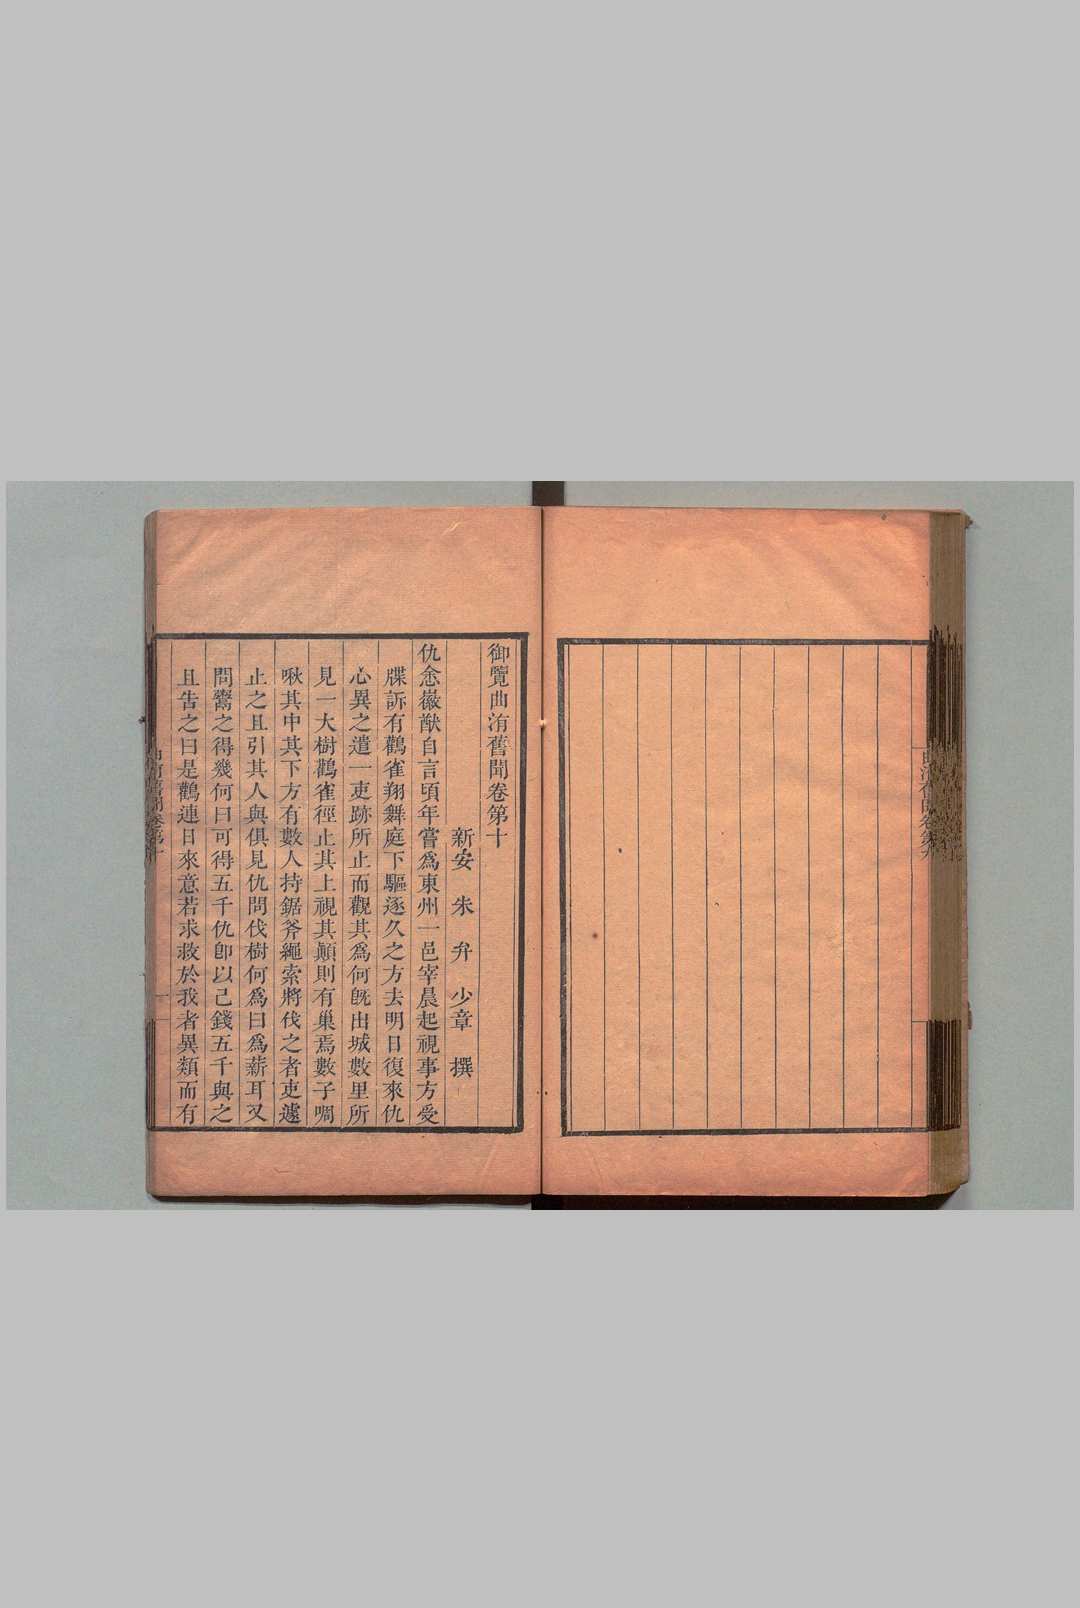 御覽曲洧舊聞卷第十
新安朱弁少章撰
仇悆徽猷自言頃年嘗爲東州一邑宰晨起視事方受
牒訴有鸛雀翔舞庭下驅逐久之方去明日復來仇
心異之遣一吏跡所止而觀其爲何旣出城數里所
見一大樹鸛雀徑止其上視其顚則有巢焉數子啁
啾其中其下方有數人持鋸斧繩索將伐之者吏遽
止之且引其人與俱見仇問伐樹何爲曰爲薪耳又
問鬻之得幾何曰可得五千仇卽以己錢五千與之
且告之曰是鸛連日來意若求救於我者異類而有